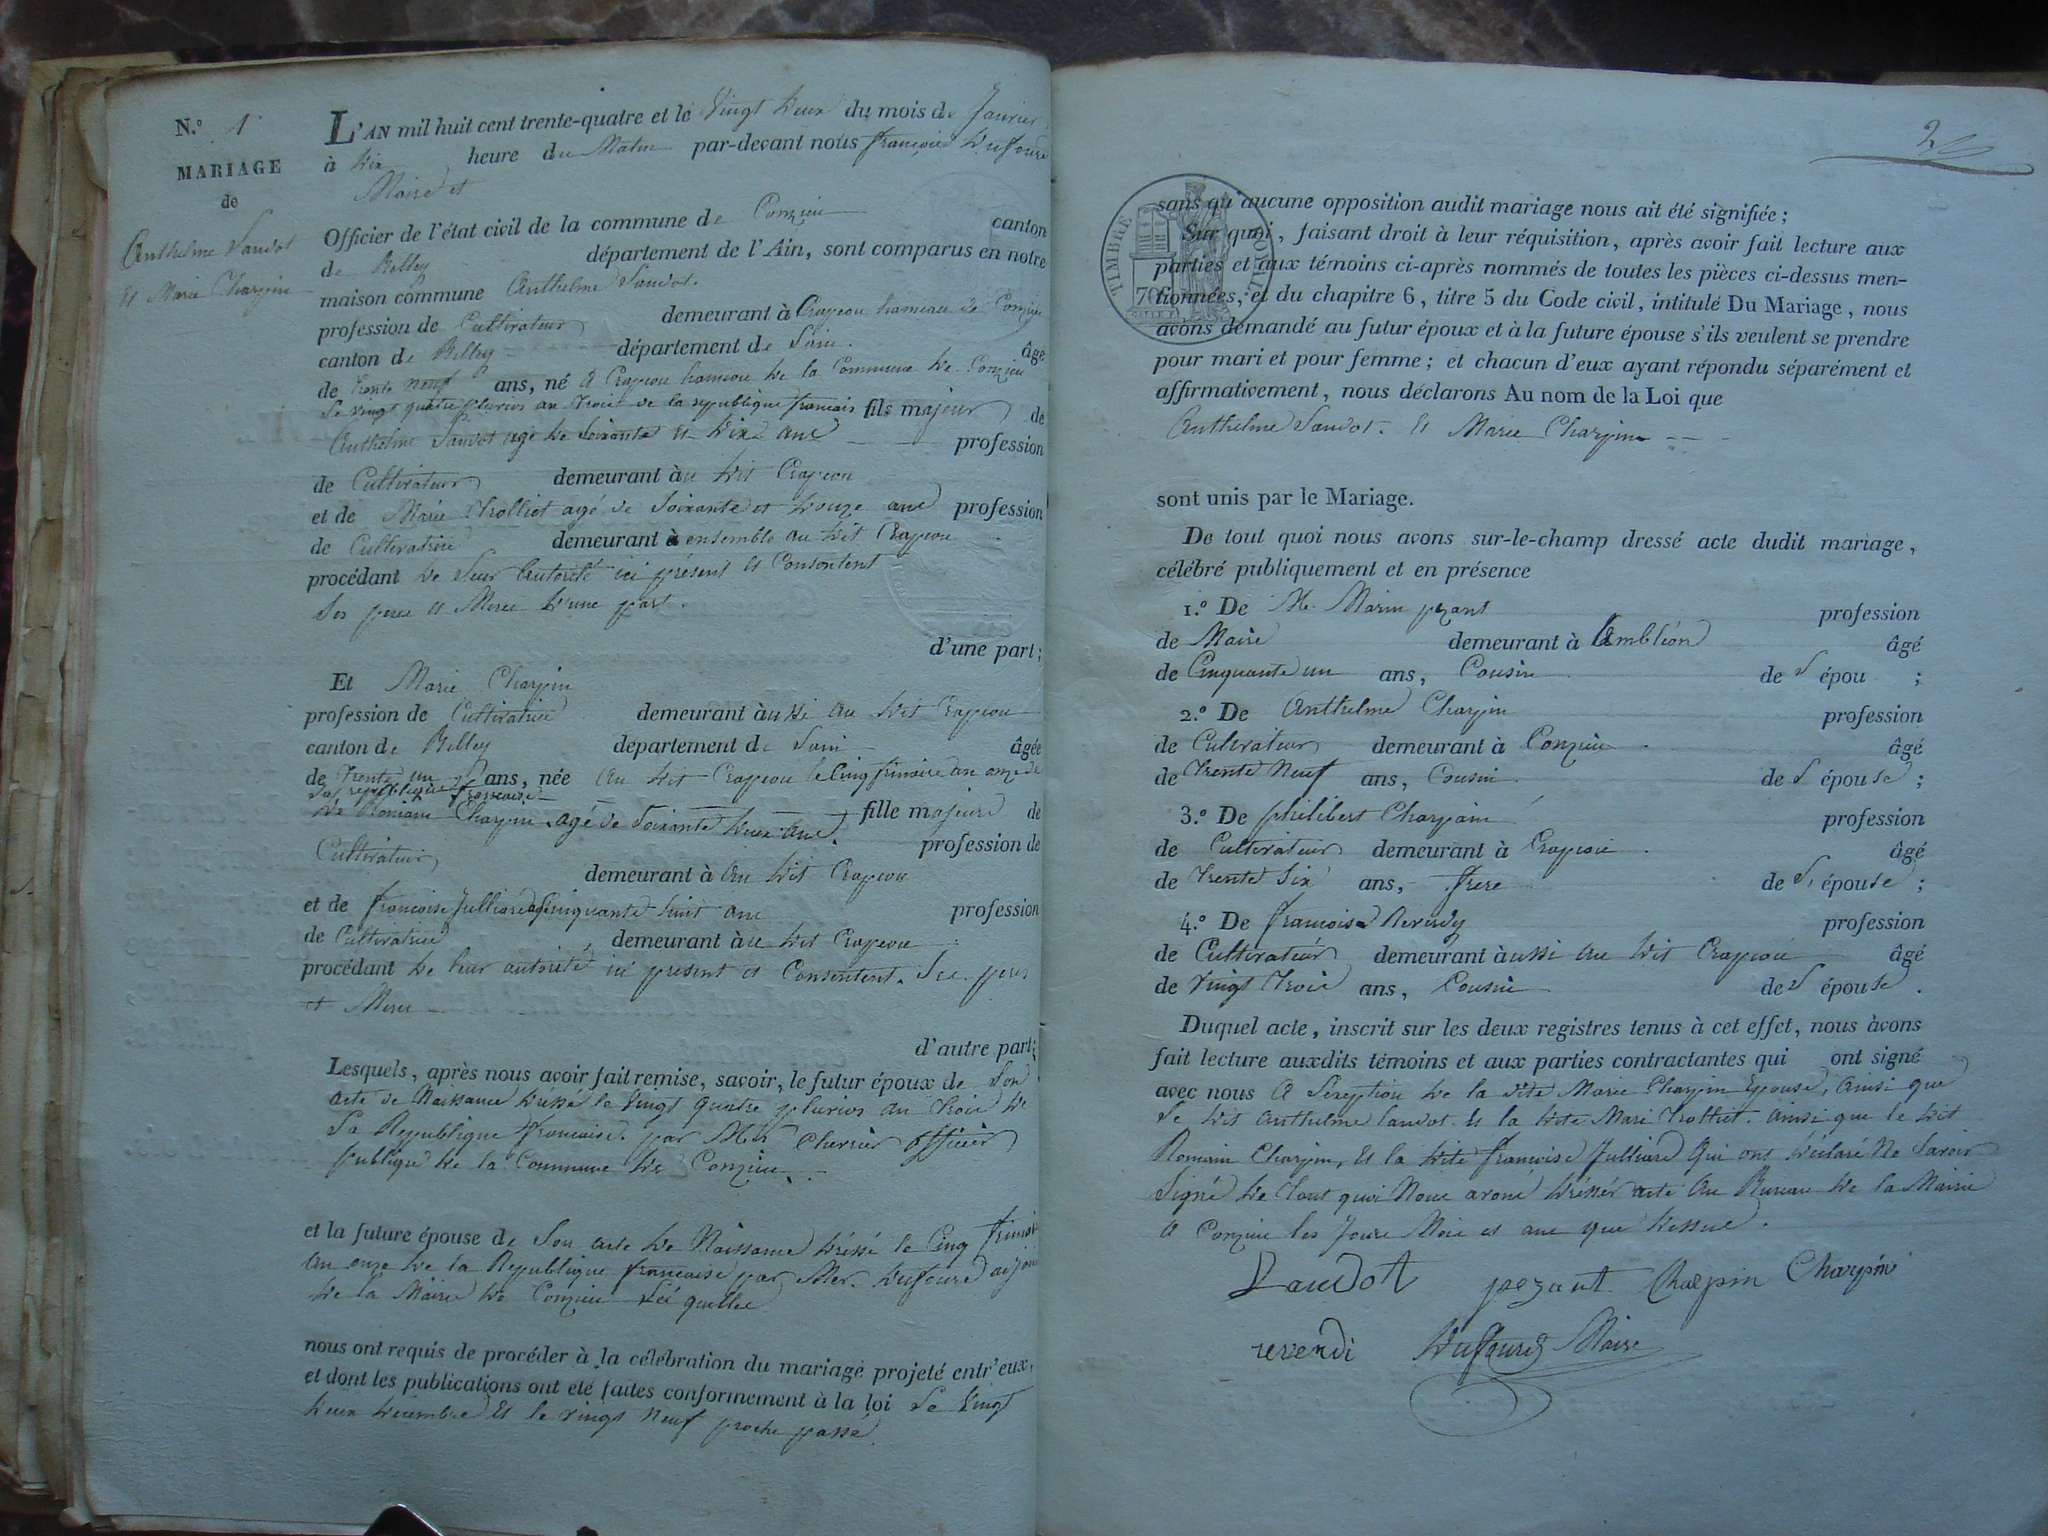 N.º 1
MARIAGE
de
Anthelme Landot
Et Marie Charpin
L'AN mil huit cent trente-quatre et le vingt deux du mois de Janvier
à dix heure du Matin par-devant nous françois Dufour
Maire et
Officier de l'état civil de la commune de Conzieu canton
de Belley département de l'Ain, sont comparus en notre
maison commune Anthelme Landot.
profession de Cultivateur demeurant à Crapeou hameau de Conzieu
canton de Belley département de Lain. âgé
de trente neuf ans, né a Crapeou hameau de la Commune de Conzieu
Le vingt quatre pluvios an trois de la republique francais fils majeur de
Anthelme Landot agé de Soixante et dix ans profession
de Cultivateur demeurant àu dit Crapeou
et de Marie Trolliet agé de Soixante et douze ans profession
de Cultivatrice demeurant à ensemble au dit Crapeou
procédant de Leur Autorité ici présent et Consentent
Ses pere et Mere d'une part.
d'une part;
Et Marie Charpin
profession de Cultivatrice demeurant àussi au dit Crapeou
canton de Belley département de Lain âgée
de trente un ans, née au dit Crapeou le cinq frimaire an onze de
La republique francaise
de Romain Charpin agé de Soixante deux ans. fille majeure de
Cultivateur profession de
demeurant à au dit Crapeou
et de francoise Julliard agé cinquante huit ans profession
de Cultivatrice demeurant àu dit Crapeou
procédant de leur autorité ici present et Consentent. Ses pere
et Mere
d'autre part;
Lesquels, après nous avoir fait remise, savoir, le futur époux de Son
acte de Naissance dressé le vingt quatre pluvios an trois de
La Republique francaise. par Mr Cherrier officier
publique de la Commune de Conzieu
et la future épouse de Son acte de Naissance dréssé le Cinq frimaire
an onze de la Republique francaise par Mer. Dufour adjoin
de la Maire de Conzieu
nous ont requis de procéder à la célébration du mariage projeté entr'eux,
et dont les publications ont été faites conformément à la loi Le vingt
deux decembre Et le vingt neuf proche passé
2
TIMBRE ROYAL
70
sans qu'aucune opposition audit mariage nous ait été signifiée;
Sur quoi, faisant droit à leur réquisition, après avoir fait lecture aux
parties et aux témoins ci-après nommés de toutes les pièces ci-dessus men-
tionnées, et du chapitre 6, titre 5 du Code civil, intitulé Du Mariage, nous
avons demandé au futur époux et à la future épouse s'ils veulent se prendre
pour mari et pour femme; et chacun d'eux ayant répondu séparément et
affirmativement, nous déclarons Au nom de la Loi que
Anthelme Landot. Et Marie Charpin
sont unis par le Mariage.
De tout quoi nous avons sur-le-champ dressé acte dudit mariage,
célébré publiquement et en présence
1.º De Mr. Marin pezant profession
de Maire demeurant à Ambléon âgé
de Cinquante un ans, Cousin de L épou ;
2.º De Anthelme Charpin profession
de Cultivateur demeurant à Conzieu . âgé
de trente Neuf ans, Cousin de L épouse ;
3.º De philibert Charpain profession
de Cultivateur demeurant à Crapeou . âgé
de trente Six ans, frere de L, épouse ;
4.º De francois Reverdy profession
de Cultivateur demeurant àussi au dit Crapeou âgé
de vingt trois ans, Cousin de L épouse .
Duquel acte, inscrit sur les deux registres tenus à cet effet, nous avons
fait lecture auxdits témoins et aux parties contractantes qui ont signé
avec nous A Léxeption de la dite Marie Charpin Epouse, Ainsi que
Le dit Anthelme Landot Et la dite Mari Trolliet. ainsi que le dit
Romain Charpin, Et la dite francoise Julliard Qui ont déclaré Ne Savoir
Signé De tout quoi Nous avons drésser acte Au Bureau de la Mairie
A Conzieu les Jours Mois et ans que dessus.
Landot pezant Charpin Charpin
reverdi Dufour Maire